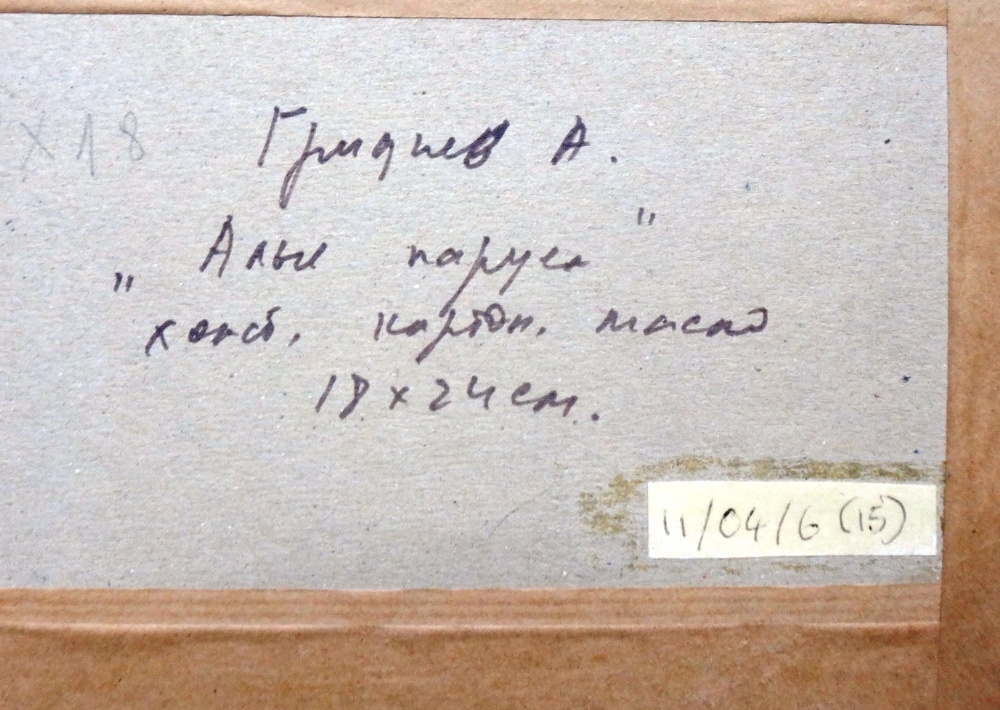 X18
Гриднев А.
„Алые паруса"
холст, картон, масло
18 x 24 см.
11/04/6 (15)